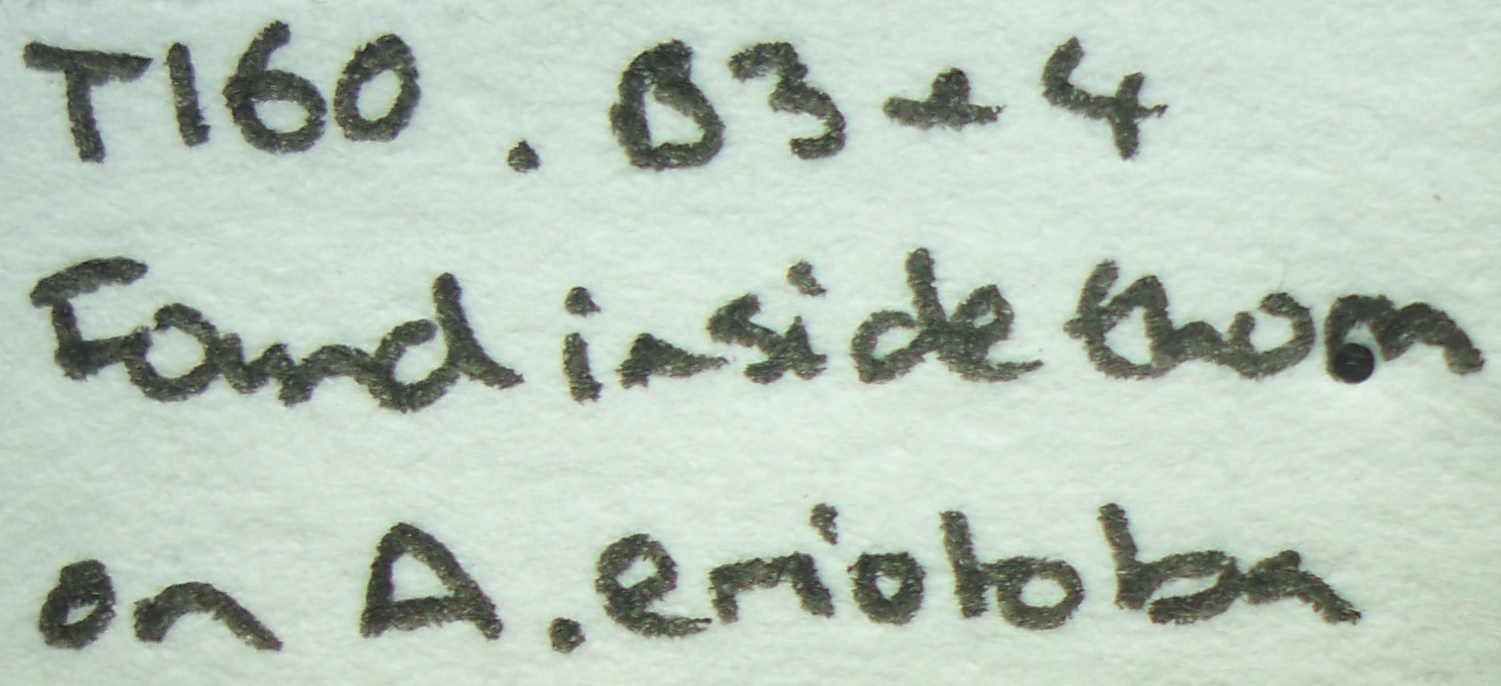 T160. B3+4
Found inside thorn
on A. erioloba